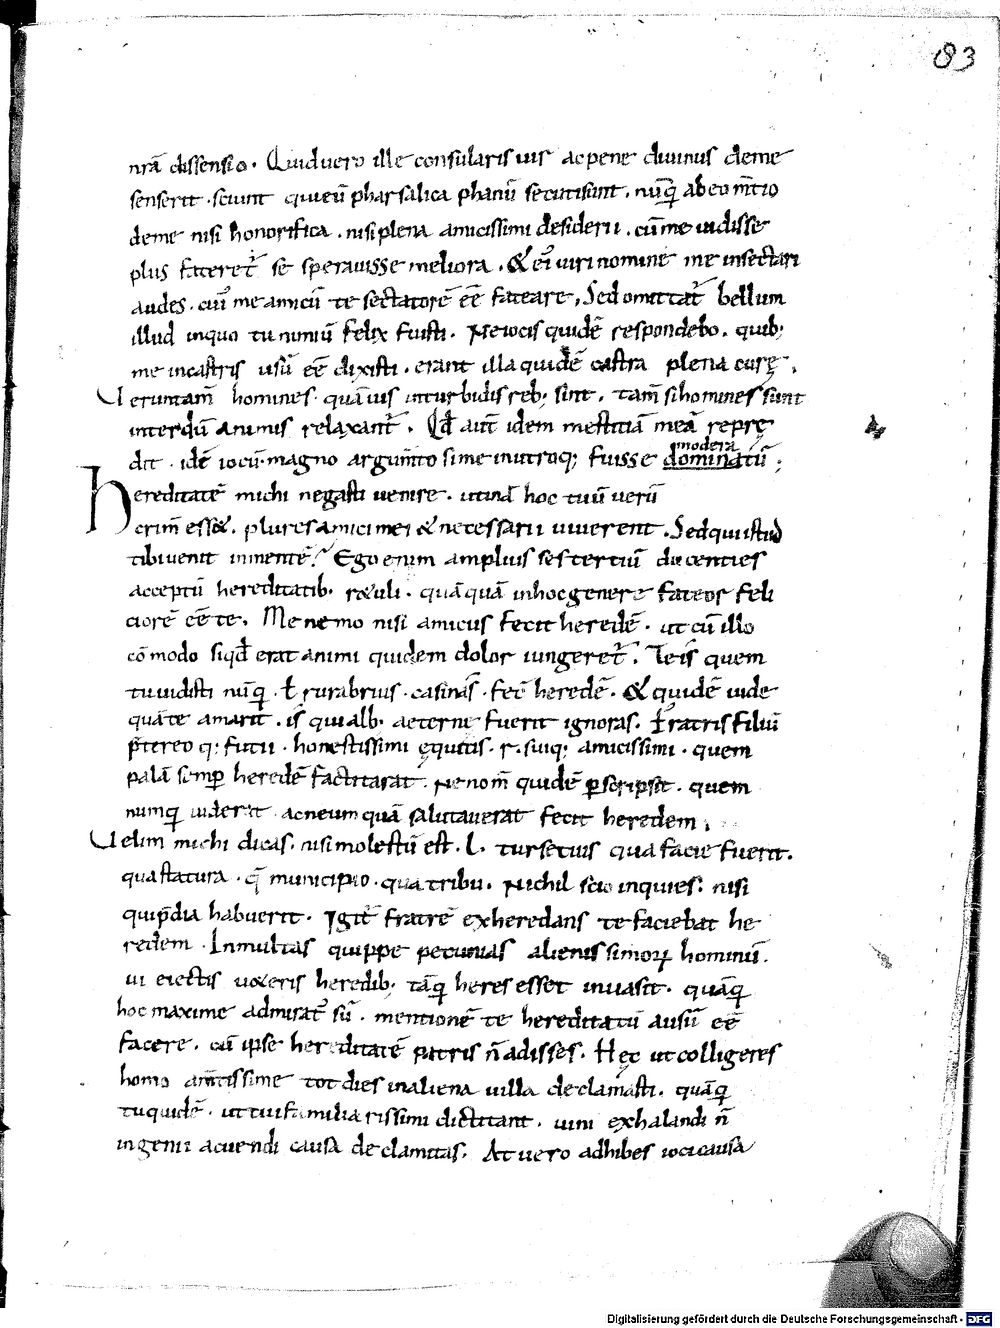 83
nr̄a dissensio. Quid vero ille consularis uir ac pene diuinus de me
senserit. sciunt qui eū pharsalica phanū secuti sunt. nūq̄ ab eo m̄tio
de me nisi honorifica. nisi plena amicissimi desiderii. cū me uidisse
plus fateret̄ se sperauisse meliora. & ei᷒ uiri nomine me insectari
audes. cui᷒ me amicū te sectatorē eē fateare. Sed omittat̄ bellum
illud in quo tu nimiū felix fuisti. Ne iocis quidē respondebo. quib;
me in castris usū eē dixisti. erant illa quidē castra plena curę.
Ueruntam̄ homines quāuis in turbidis reb; sint. tam̄ si homines sunt
interdū animis relaxant̄. Qd̄ aut̄ idem mestitiā meā reprę
dit. idē iocū. magno argum̄to si me in utroq; fuisse dominatū;
modera
hereditatē michi negasti uenire. utinā hoc tuū uerū
crim̄ ess&. plures amici mei & necessarii uiuerent. Sed qui istud
tibi uenit in mentē? Ego enim amplius sestertiū ducenties
acceptū hereditatib; r&uli. quāquā in hoc genere fateor feli
ciorē eē te. Me nemo nisi amicus fecit heredē. ut cū illo
cōmodo siqd̄ erat animi quidem dolor iungeret̄. Te is quem
tu uidisti nūq̄. L rurabrius. casinas. fec̄ heredē. & quidē uide
quā te amarit. is qui alb; aeterne fuerit ignoras. Fratris filiū
p̄tereo q; futii. honestissimi equitis. r. suiq; amicissimi. quem
palā semp̱ heredē factitarat. Ne nom̄ quidē p̱scripsit. quem
numq̄ uiderat ac neumquā salutauerat fecit heredem.
Uelim michi dicas. nisi molestū est. L. turselius qua facie fuerit.
qua statura. q̄ municipio. qua tribu. Nichil scio inquies. nisi
qui p̄dia habuerit. Igit̄ fratrē exheredans te faciebat he
redem. In multas quippe pecunias alienissimorꝝ hominū.
ui eiectis ueris heredib; tāq̄ heres esset inuasit. quāq̄
hoc maxime admirat᷒ sū. mentionē te hereditatū ausū eē
facere. cū ipse hereditatē patris n̄ adisses. Hęc ut colligeres
homo am̄tissime tot dies in aliena uilla declamasti. quāq̄
tu quidē. ut tui familiarissimi dictitant. uini exhalandi n̄
ingenii acuendi causa declamitas. At uero adhibes ioci causa
Digitalisierung gefördert durch die Deutsche Forschungsgemeinschaft - DFG